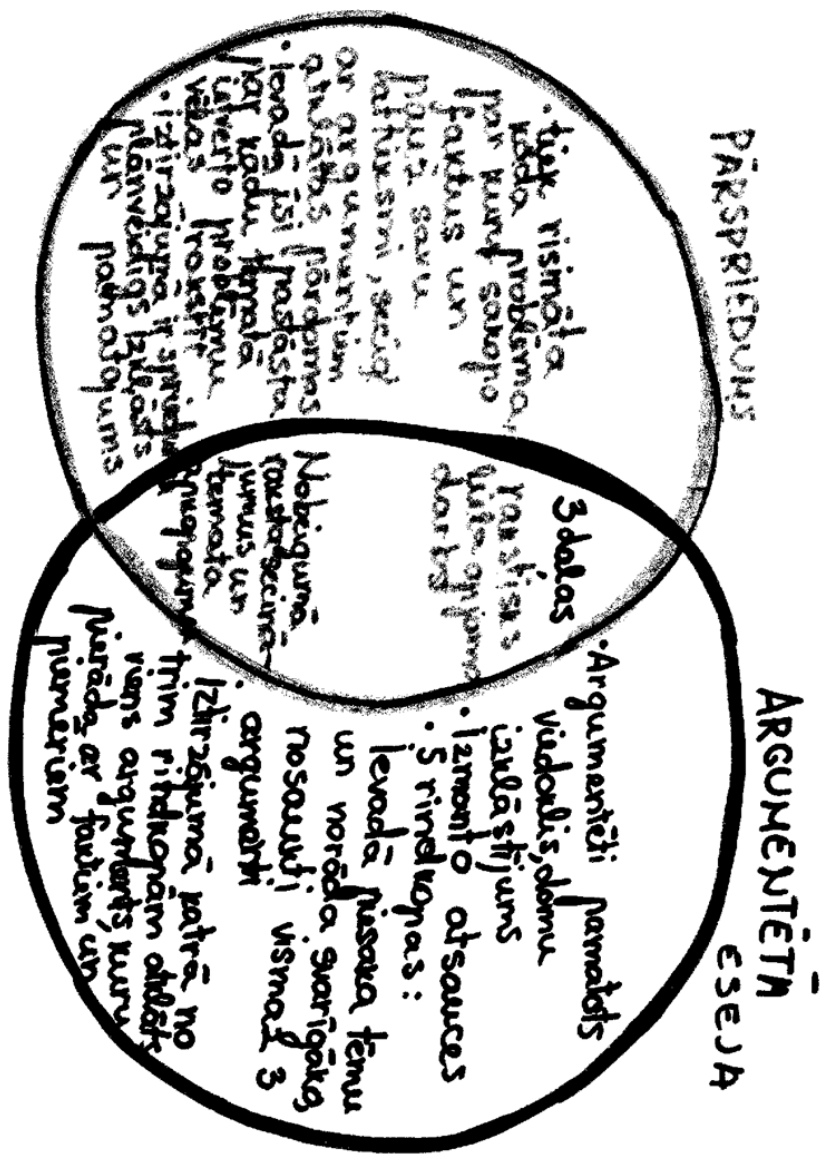 PĀRSPRIEDUMS
• tiek risināta
kāda problēma,
par kuru sakopo
faktus un
pauž savu
attieksmi, secīgi
ar argumentiem
atklātas pārdomas
• Ievadā īsi pastāsta
par kādu tematā
ietverto problēmu
vēlas
• iztirzājumā ir spriedumi
plānveidīgs izklāsts
un pamatojums
3 daļas
rakstisks
darbs
Nobeigumā
raksta secinā-
jumus un
temata
ARGUMENTĒTĀ
ESEJA
• Argumentēti pamatots
viedoklis, domu
izklāstījums
• Izmanto atsauces
• 5 rindkopas:
Ievadā piesaka tēmu
un norāda svarīgāko,
nosaukti vismaz 3
argumenti
• Iztirzājumā katrā no
trim rindkopām atklāts
viens arguments, kuru
pierāda ar faktiem un
piemēriem